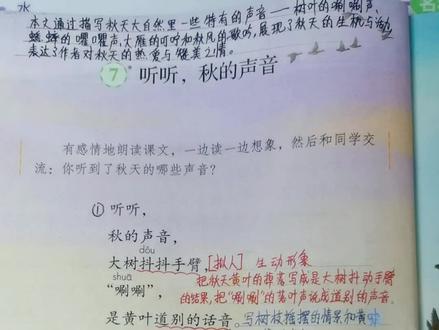 水
本文通过描写秋天大自然里一些特有的声音——树叶的唰唰声、
蟋蟀的㘗㘗声、大雁的叮咛和秋风的歌吟,展现了秋天的生机与活力,
表达了作者对秋天的热爱与赞美之情。
7 听听,秋的声音
有感情地朗读课文,一边读一边想象,然后和同学交
流:你听到了秋天的哪些声音?
① 听听,
秋的声音,
dǒu
大树抖抖手臂,[拟人] 生动形象
把秋天黄叶的掉落写成是大树抖动手臂
shuā
“唰唰”,
的结果,把“唰唰”的落叶声说成道别的声音。
是黄叶道别的话音。写树枝摇摆的情景和黄